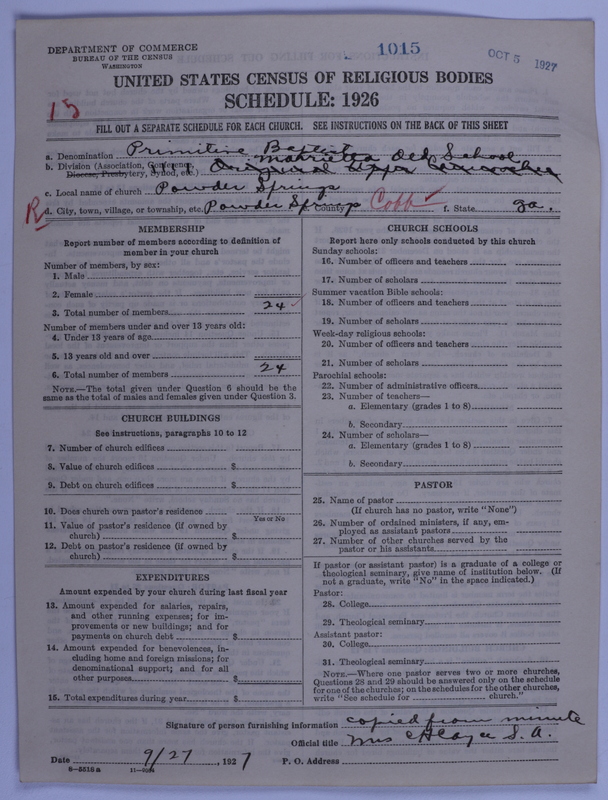 DEPARTMENT OF COMMERCE
BUREAU OF THE CENSUS
WASHINGTON
1015
OCT 5 1927
UNITED STATES CENSUS OF RELIGIOUS BODIES
SCHEDULE: 1926
15
FILL OUT A SEPARATE SCHEDULE FOR EACH CHURCH. SEE INSTRUCTIONS ON THE BACK OF THIS SHEET
a. Denomination Primitive Baptist
b. Division (Association, Conference, Marietta Old School
Diocese, Presbytery, Synod, etc.) Original Upper
c. Local name of church Powder Springs
R
d. City, town, village, or township, etc. Powder Springs e. County Cobb f. State Ga.
MEMBERSHIP
Report number of members according to definition of
member in your church
Number of members, by sex:
1. Male
2. Female
3. Total number of members 24
Number of members under and over 13 years old:
4. Under 13 years of age
5. 13 years old and over
6. Total number of members 24
NOTE.—The total given under Question 6 should be the
same as the total of males and females given under Question 3.
CHURCH BUILDINGS
See instructions, paragraphs 10 to 12
7. Number of church edifices
8. Value of church edifices $
9. Debt on church edifices $
10. Does church own pastor's residence
Yes or No
11. Value of pastor's residence (if owned by
church) $
12. Debt on pastor's residence (if owned by
church) $
EXPENDITURES
Amount expended by your church during last fiscal year
13. Amount expended for salaries, repairs,
and other running expenses; for im-
provements or new buildings; and for
payments on church debt $
14. Amount expended for benevolences, in-
cluding home and foreign missions; for
denominational support; and for all
other purposes $
15. Total expenditures during year $
CHURCH SCHOOLS
Report here only schools conducted by this church
Sunday schools:
16. Number of officers and teachers
17. Number of scholars
Summer vacation Bible schools:
18. Number of officers and teachers
19. Number of scholars
Week-day religious schools:
20. Number of officers and teachers
21. Number of scholars
Parochial schools:
22. Number of administrative officers
23. Number of teachers—
a. Elementary (grades 1 to 8)
b. Secondary
24. Number of scholars—
a. Elementary (grades 1 to 8)
b. Secondary
PASTOR
25. Name of pastor
(If church has no pastor, write "None")
26. Number of ordained ministers, if any, em-
ployed as assistant pastors
27. Number of other churches served by the
pastor or his assistants
If pastor (or assistant pastor) is a graduate of a college or
theological seminary, give name of institution below. (If
not a graduate, write "No" in the space indicated.)
Pastor:
28. College
29. Theological seminary
Assistant pastor:
30. College
31. Theological seminary
NOTE.—Where one pastor serves two or more churches,
Questions 28 and 29 should be answered only on the schedule
for one of the churches; on the schedules for the other churches,
write "See schedule for church."
Signature of person furnishing information copied from minute
Official title Mrs S. A.
Date 9/27, 1927 P. O. Address
8—5518 a